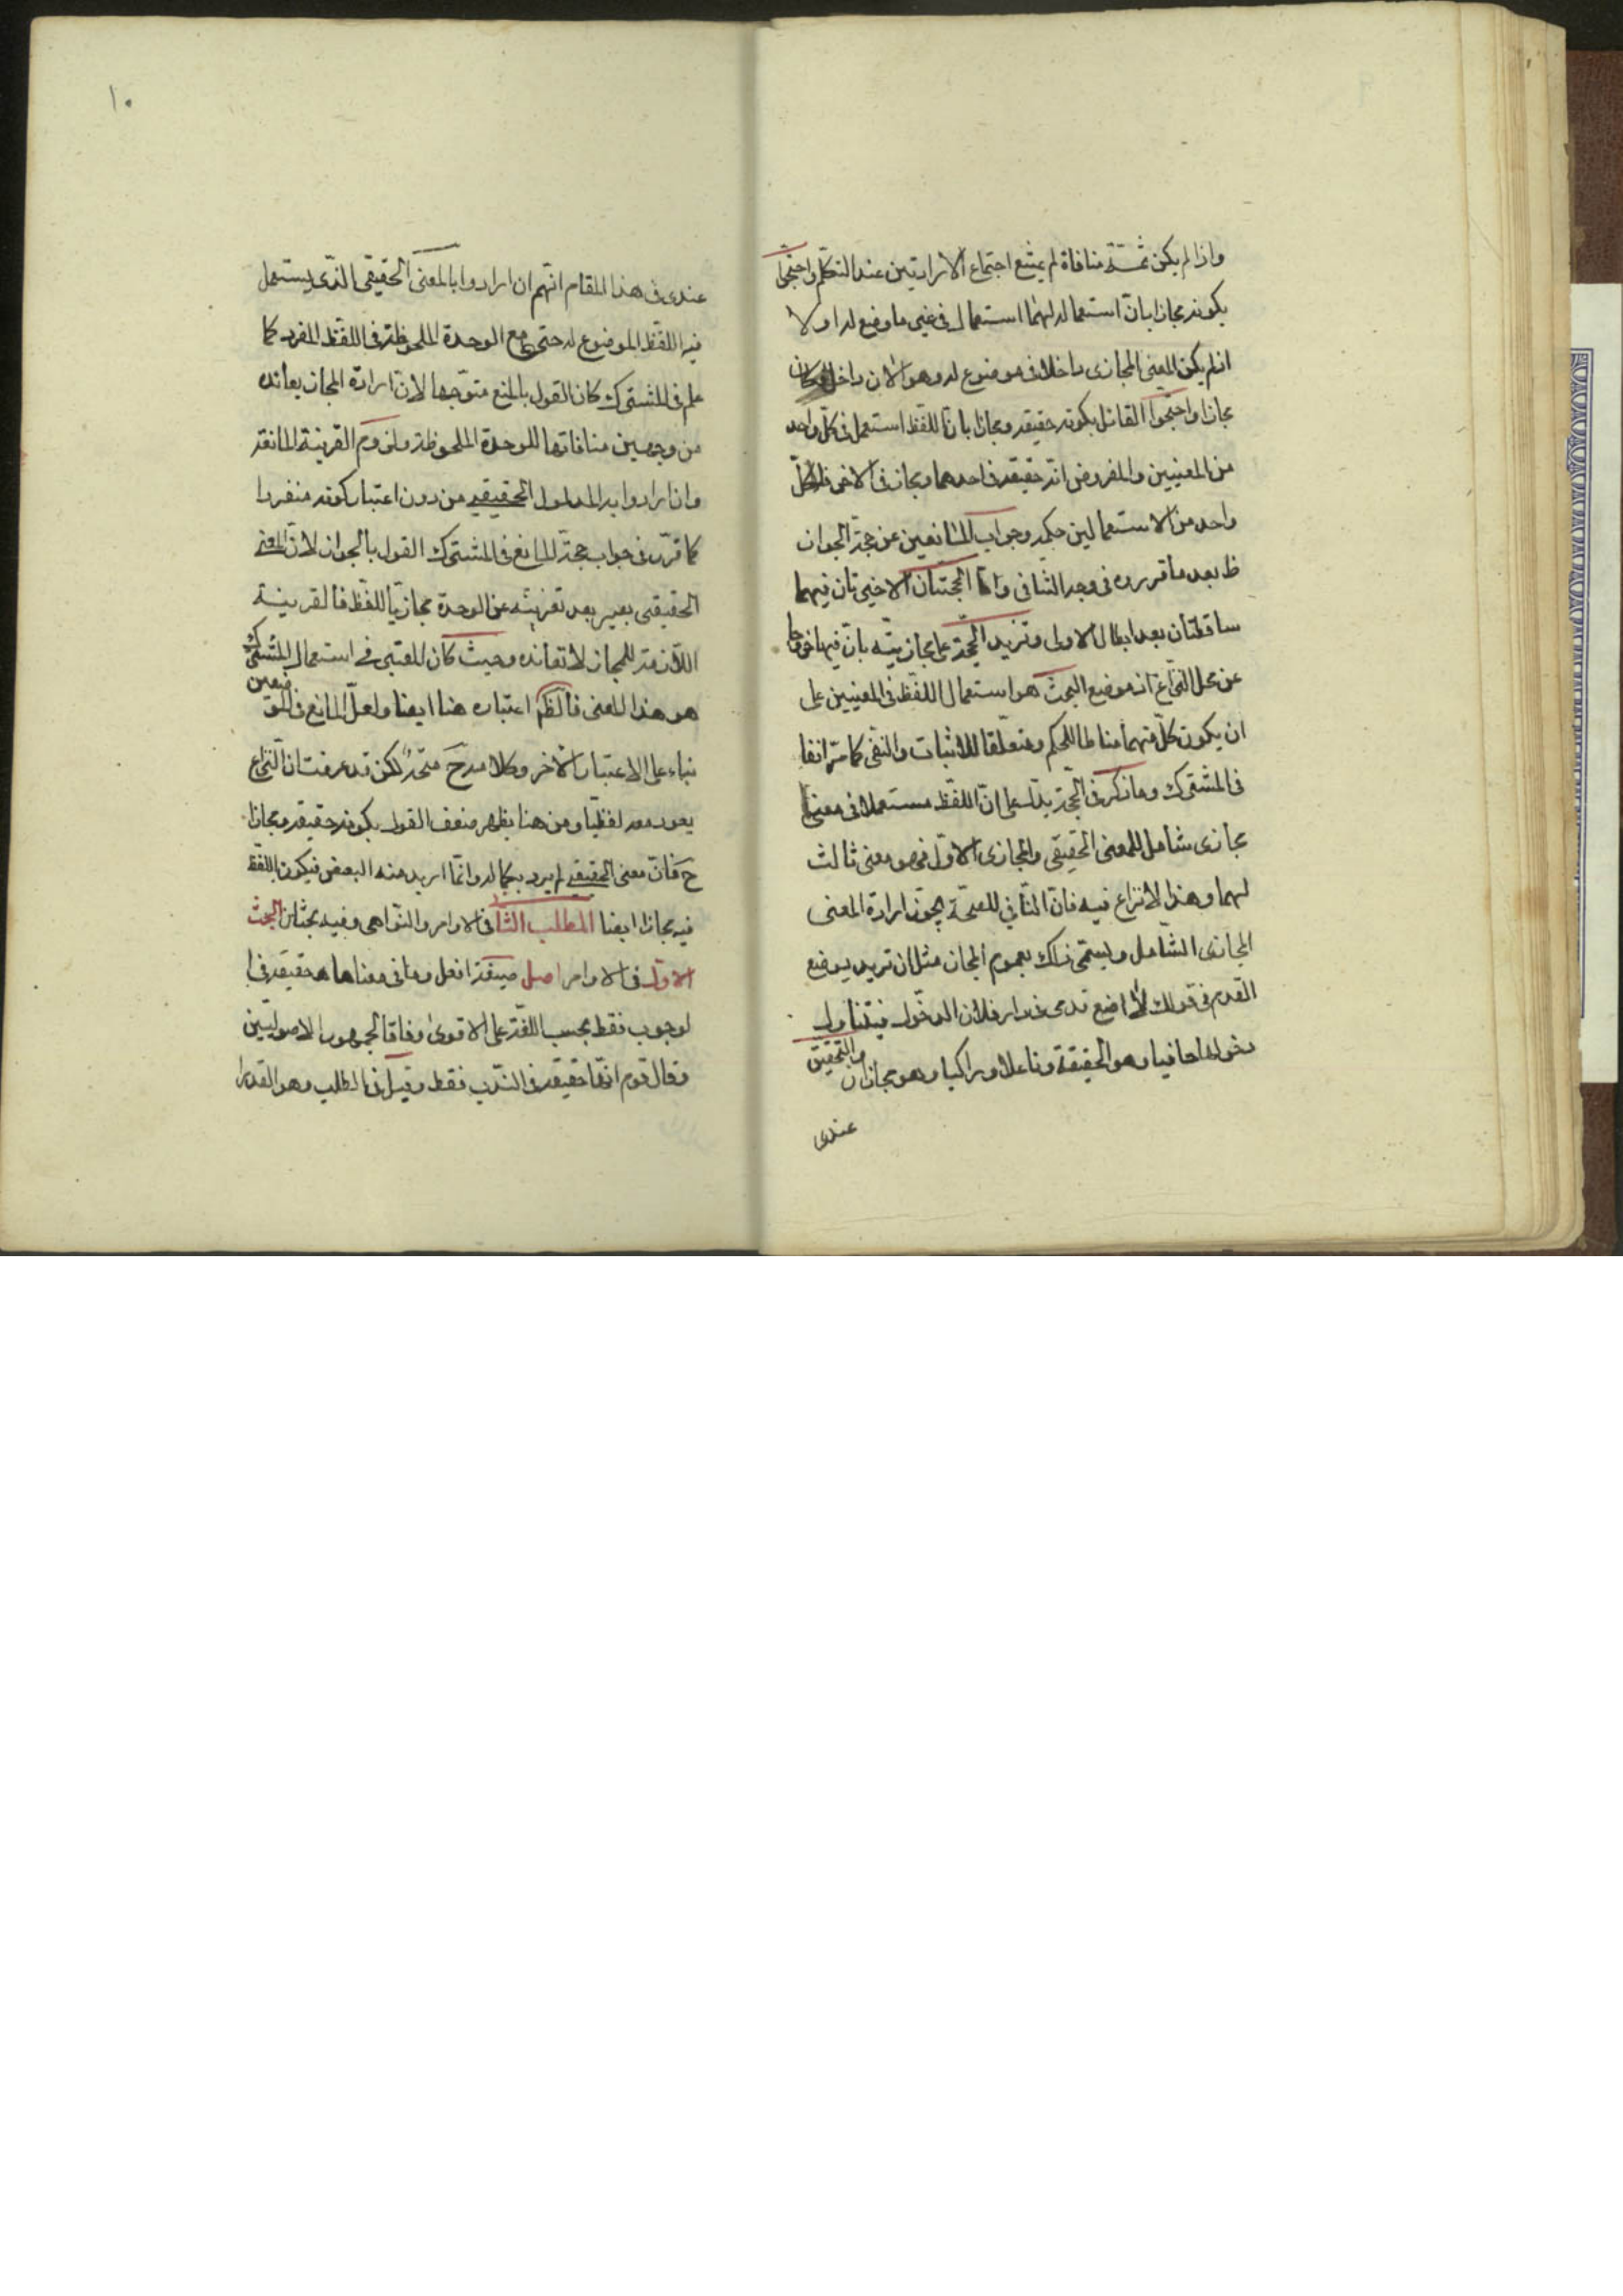 واذا لم يكن ثمّة منافاة لم يمتنع اجتماع الارادتين عند التكلّم واحتجّوا
بكونه مجازا بانّ استعماله لهما استعمال فى غير ما وضع له اولا
اذ لم يكن المعنى المجازى داخلا فى موضوع له وهو الان داخل فكان
مجازا واحتجّوا القائل بكونه حقيقة ومجازا بانّ اللفظ استعمل فى كلّ واحد
من المعنيين والمفروض انّه حقيقة فى احدهما ومجاز فى الاخر فلكلّ
واحد من الاستعمالين حكمه وجواب المانعين عن حجّة الجواز
ظ بعد ما قرروه فى وجه التنافى وامّا الحجّتان الاخيرتان فهما
ساقطتان بعد ابطال الاولى وتزيد الحجّة على مجازيّته بانّ فيها خروجا
عن محل النزاع اذ موضع البحث هو استعمال اللفظ فى المعنيين على
ان يكون كلّ منهما مناطا للحكم ومتعلّقا للاثبات والنفى كما مرّ انفا
فى المشترك وما ذكر فى الحجّة يدلّ على انّ اللفظ مستعملا فى معنى
مجازى شامل للمعنى الحقيقى والمجازى الاوّل فهو معنى ثالث
لهما وهذا لا نزاع فيه فانّ النّافى للصحّة يجوّز ارادة المعنى
المجازى الشامل ويسمّى ذلك بعموم المجاز مثل ان تريد بوضع
القدم فى قولك لا اضع قدمى فى دار فلان الدخول فيتناول
دخولها حافيا وهو الحقيقة وناعلا وراكبا وهو مجازان
والتحقيق
عندى
١٠
عندى فى هذا المقام انّهم ان ارادوا بالمعنى الحقيقى الّذى يستعمل
فيه اللفظ الموضوع له حتى مع الوحدة الملحوظة فى اللفظ المفرد كما
علم فى المشترك كان القول بالمنع متوجّها لانّ ارادة المجاز يعانده
من وجهين منافاتها للوحدة الملحوظة ولزوم القرينة المانعة
وان ارادوا به المدلول الحقيقى من دون اعتبار كونه منفردا
كما قرّر فى جواب حجّة المانع فى المشترك القول بالجواز لانّ المعنى
الحقيقى يصير بعد تعريته عن الوحدة مجازيّا للفظ فالقرينة
اللازمة للمجاز لا تعانده وحيث كان المعتبر فى استعمال المشترك
هو هذا المعنى فالظّ اعتباره هنا ايضا ولعلّ المانع فى الموضعين
بناء على الاعتبار الآخر وكلامه ح متّجه لكن قد عرفت انّ النزاع
يعود معه لفظيّا ومن هنا يظهر ضعف القول بكونه حقيقة ومجازا
ح فانّ معنى الحقيقى لم يرد بكماله وانّما اريد منه البعض فيكون اللفظ
فيه مجازا ايضا المطلب الثانى فى الاوامر والنواهى وفيه بحثان البحث
الاوّل فى الاوامر اصل صيغة افعل وما فى معناها حقيقة فى ا
لوجوب فقط بحسب اللغة على الاقوى وفاقا لجمهور الاصوليّين
وقال قوم انّها حقيقة فى الندب فقط وقيل فى الطلب وهو القدر